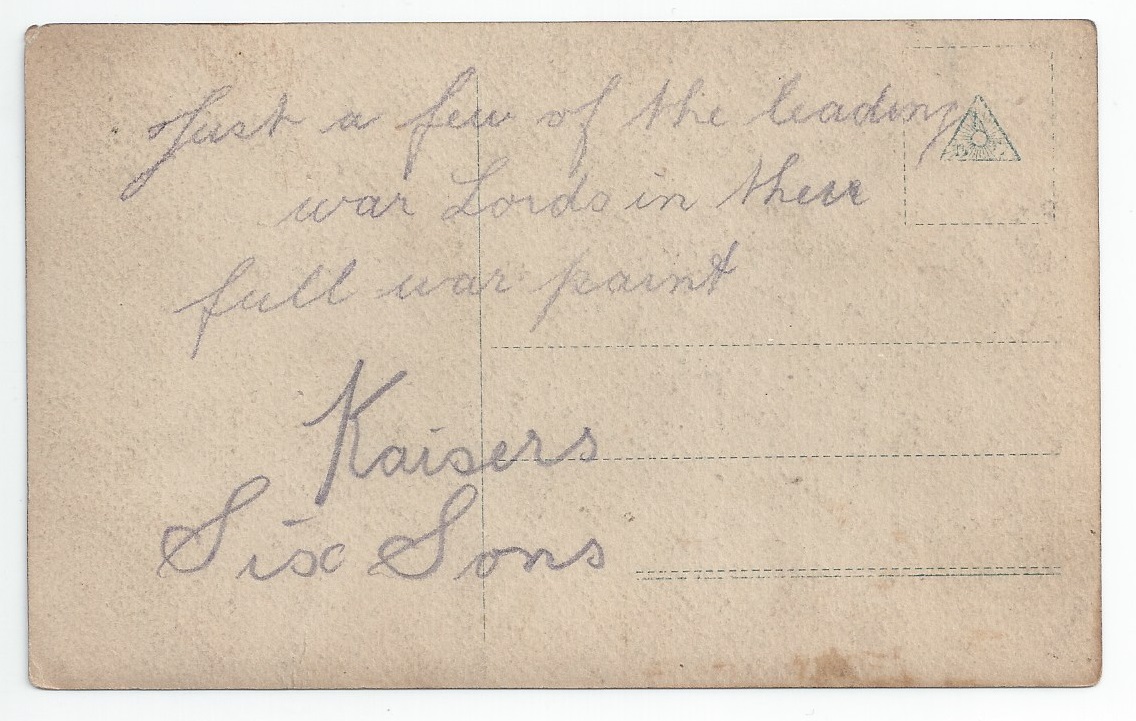 Just a few of the leading
war Lords in their
full war paint
Kaisers
Six Sons